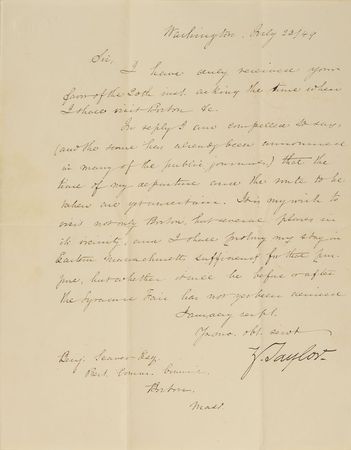 Washington, July 23/49
Sir,
I have duly received your
favor of the 20th inst. asking the time when
I shall visit Boston &c.
In reply I am compelled to say,
(and the same has already been announced
in many of the public journals,) that the
time of my departure and the route to be
taken are uncertain. It is my wish to
visit not only Boston, but several places in
its vicinity, and I shall prolong my stay in
Eastern Massachusetts sufficiently for that pur-
pose, but whether it will be before or after
the Syracuse Fair has not yet been
I am very resply.
Your obt. servt
Z. Taylor.
Benj. Seaver Esq.
Prest. Common Council
Boston.
Mass.